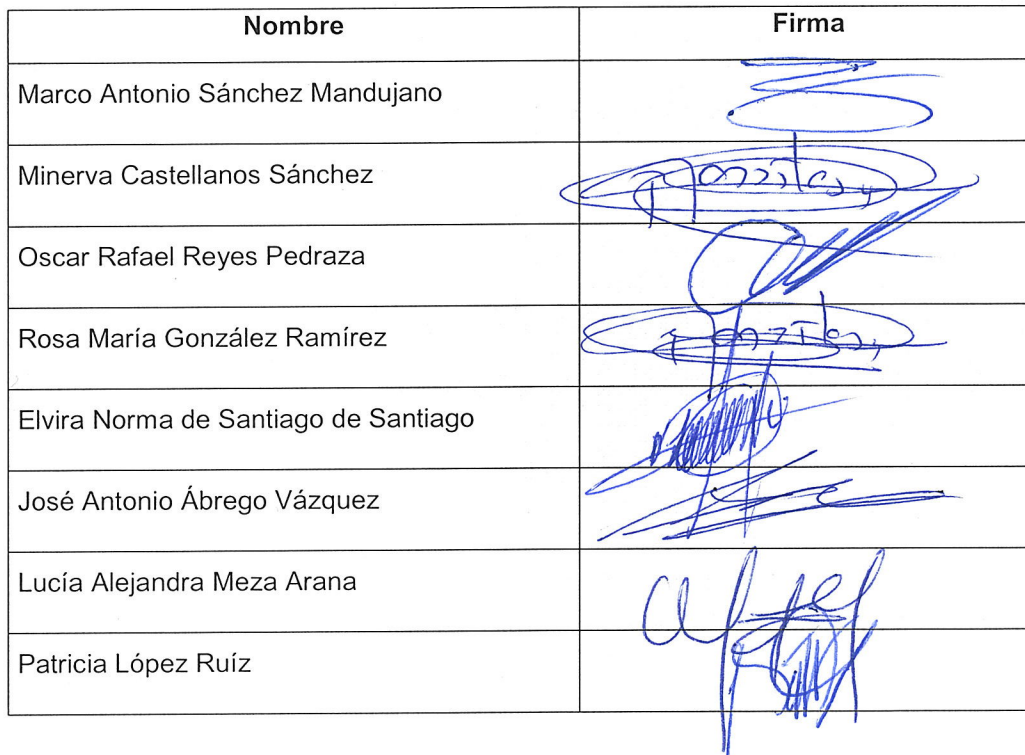 Nombre Firma
Marco Antonio Sánchez Mandujano
Minerva Castellanos Sánchez
Oscar Rafael Reyes Pedraza
Rosa María González Ramírez
Elvira Norma de Santiago de Santiago
José Antonio Ábrego Vázquez
Lucía Alejandra Meza Arana
Patricia López Ruíz